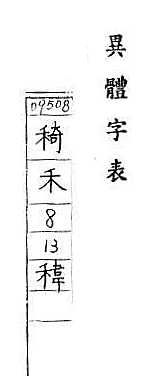 異體字表
09508
稦
禾
8
13
稕